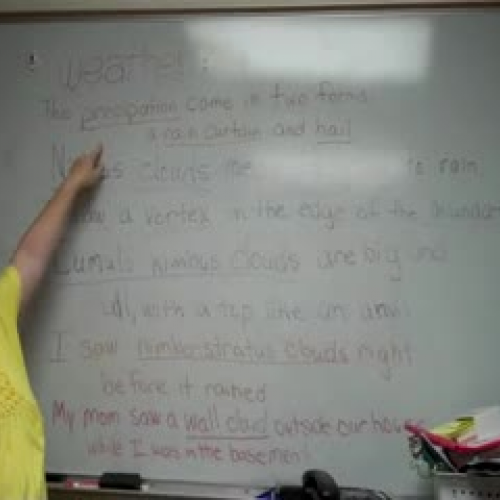 Weather:
The precipation came in two forms
a rain curtain and hail
clouds to rain
a vortex in the edge of the
Cumulo nimbus clouds are big and
tall, with a top like an
I saw nimbo-stratus clouds right
before it rained
My mom saw a wall cloud outside our house
while I was in the basement